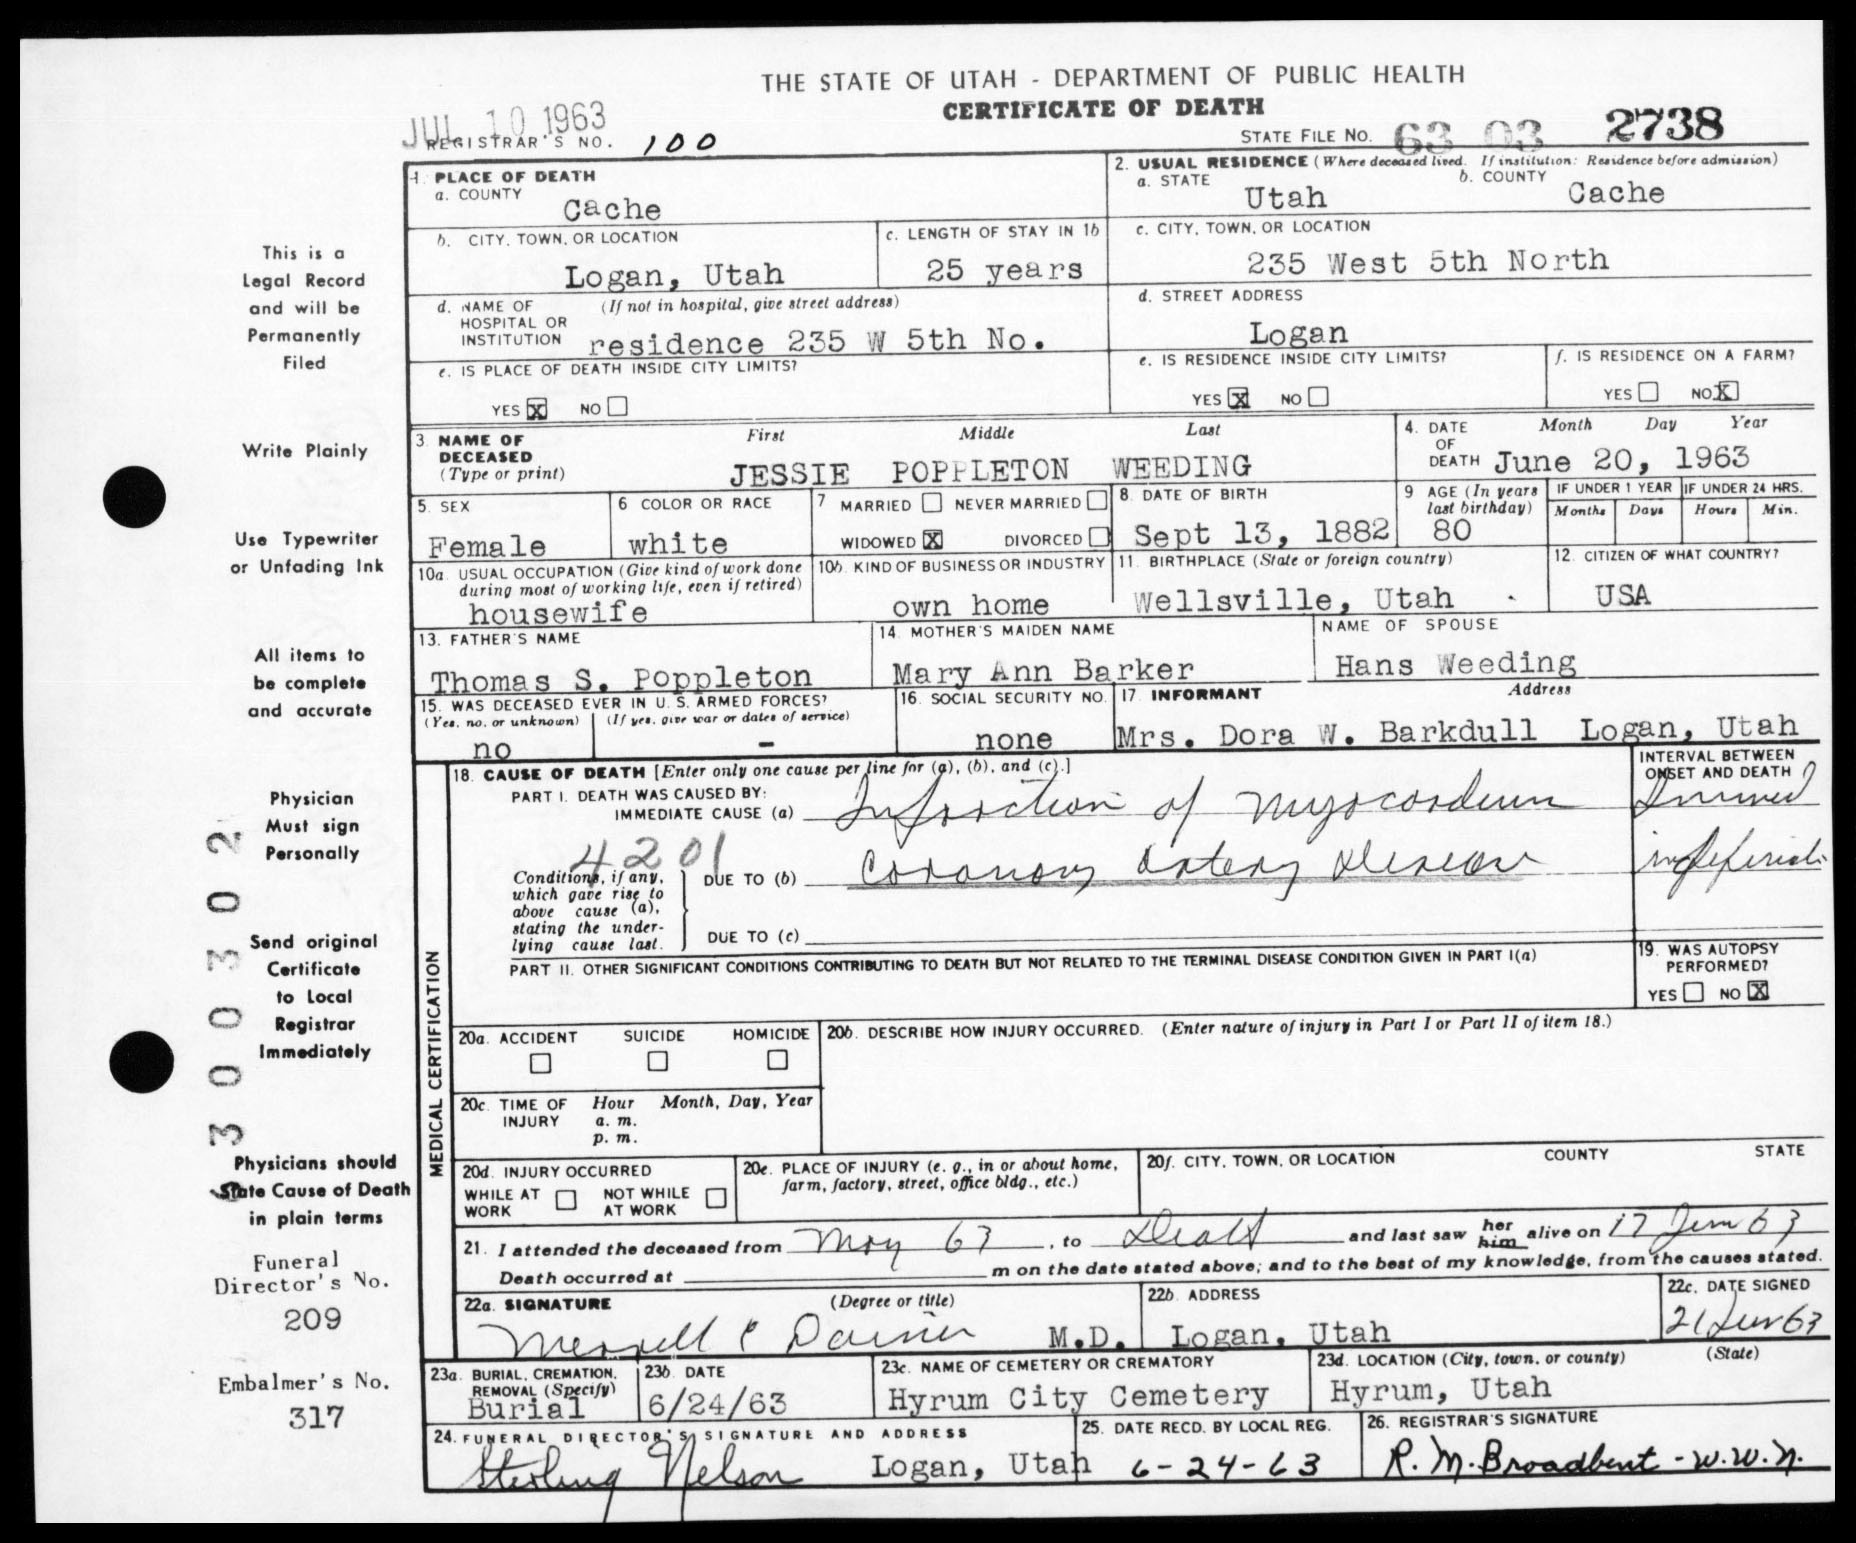 THE STATE OF UTAH - DEPARTMENT OF PUBLIC HEALTH
CERTIFICATE OF DEATH
JUL 10 1963
REGISTRAR'S NO. 100
STATE FILE NO. 63 03 2738
1. PLACE OF DEATH
a. COUNTY
Cache
2. USUAL RESIDENCE (Where deceased lived. If institution: Residence before admission)
a. STATE Utah b. COUNTY Cache
b. CITY, TOWN, OR LOCATION
Logan, Utah
c. LENGTH OF STAY IN 1b
25 years
c. CITY, TOWN, OR LOCATION
235 West 5th North
d. NAME OF HOSPITAL OR INSTITUTION (If not in hospital, give street address)
residence 235 W 5th No.
d. STREET ADDRESS
Logan
e. IS PLACE OF DEATH INSIDE CITY LIMITS?
YES X NO
e. IS RESIDENCE INSIDE CITY LIMITS?
YES X NO
f. IS RESIDENCE ON A FARM?
YES NO X
3. NAME OF DECEASED (Type or print)
First Middle Last
JESSIE POPPLETON WEEDING
4. DATE OF DEATH Month Day Year
June 20, 1963
5. SEX
Female
6 COLOR OR RACE
white
7 MARRIED NEVER MARRIED
WIDOWED X DIVORCED
8. DATE OF BIRTH
Sept 13, 1882
9 AGE (In years last birthday)
80
IF UNDER 1 YEAR
Months Days
IF UNDER 24 HRS.
Hours Min.
10a. USUAL OCCUPATION (Give kind of work done during most of working life, even if retired)
housewife
10b. KIND OF BUSINESS OR INDUSTRY
own home
11. BIRTHPLACE (State or foreign country)
Wellsville, Utah
12. CITIZEN OF WHAT COUNTRY?
USA
13. FATHER'S NAME
Thomas S. Poppleton
14. MOTHER'S MAIDEN NAME
Mary Ann Barker
NAME OF SPOUSE
Hans Weeding
15. WAS DECEASED EVER IN U. S. ARMED FORCES?
(Yes, no, or unknown) (If yes, give war or dates of service)
no -
16. SOCIAL SECURITY NO.
none
17. INFORMANT Address
Mrs. Dora W. Barkdull Logan, Utah
MEDICAL CERTIFICATION
18. CAUSE OF DEATH [Enter only one cause per line for (a), (b), and (c).]
INTERVAL BETWEEN ONSET AND DEATH
PART I. DEATH WAS CAUSED BY:
IMMEDIATE CAUSE (a) Infarction of myocardium
4201
Conditions, if any, which gave rise to above cause (a), stating the underlying cause last.
DUE TO (b) Coronary Artery Disease
DUE TO (c)
PART II. OTHER SIGNIFICANT CONDITIONS CONTRIBUTING TO DEATH BUT NOT RELATED TO THE TERMINAL DISEASE CONDITION GIVEN IN PART I(a)
19. WAS AUTOPSY PERFORMED?
YES NO X
20a. ACCIDENT SUICIDE HOMICIDE
20b. DESCRIBE HOW INJURY OCCURRED. (Enter nature of injury in Part I or Part II of item 18.)
20c. TIME OF INJURY Hour Month, Day, Year
a. m.
p. m.
20d. INJURY OCCURRED
WHILE AT WORK NOT WHILE AT WORK
20e. PLACE OF INJURY (e. g., in or about home, farm, factory, street, office bldg., etc.)
20f. CITY, TOWN, OR LOCATION COUNTY STATE
21. I attended the deceased from May 63, to Death and last saw her him alive on 17 Jun 63
Death occurred at m on the date stated above; and to the best of my knowledge, from the causes stated.
22a. SIGNATURE (Degree or title)
Merrell C Daines M.D.
22b. ADDRESS
Logan, Utah
22c. DATE SIGNED
21 Jun 63
23a. BURIAL, CREMATION, REMOVAL (Specify)
Burial
23b. DATE
6/24/63
23c. NAME OF CEMETERY OR CREMATORY
Hyrum City Cemetery
23d. LOCATION (City, town, or county) (State)
Hyrum, Utah
24. FUNERAL DIRECTOR'S SIGNATURE AND ADDRESS
Sterling Nelson Logan, Utah
25. DATE RECD. BY LOCAL REG.
6-24-63
26. REGISTRAR'S SIGNATURE
R. M. Broadbent - W.W.N.
This is a
Legal Record
and will be
Permanently
Filed
Write Plainly
Use Typewriter
or Unfading Ink
All items to
be complete
and accurate
Physician
Must sign
Personally
Send original
Certificate
to Local
Registrar
Immediately
Physicians should
State Cause of Death
in plain terms
Funeral
Director's No.
209
Embalmer's No.
317